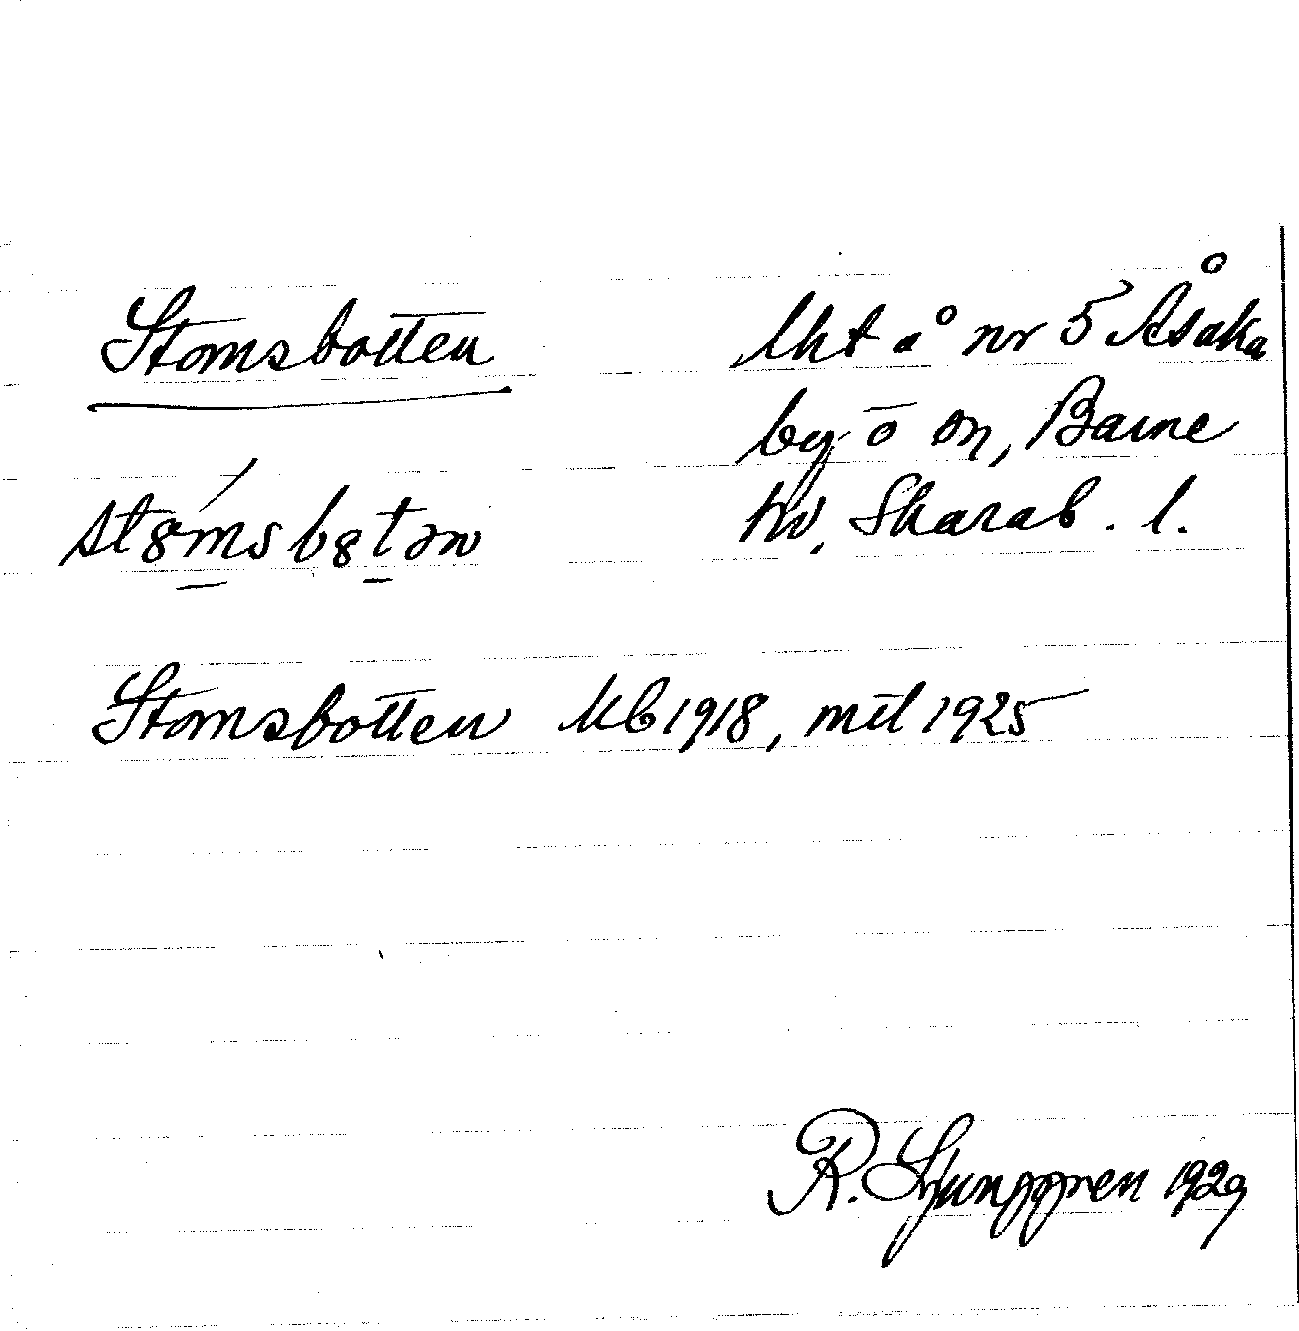 Stomsbotten
lht å nr 5 Åsaka
by o on, Barne
hd, Skarab. l.
st8msb8tən
Stomsbotten kb 1918, mtl 1925
R. Ljunggren 1929